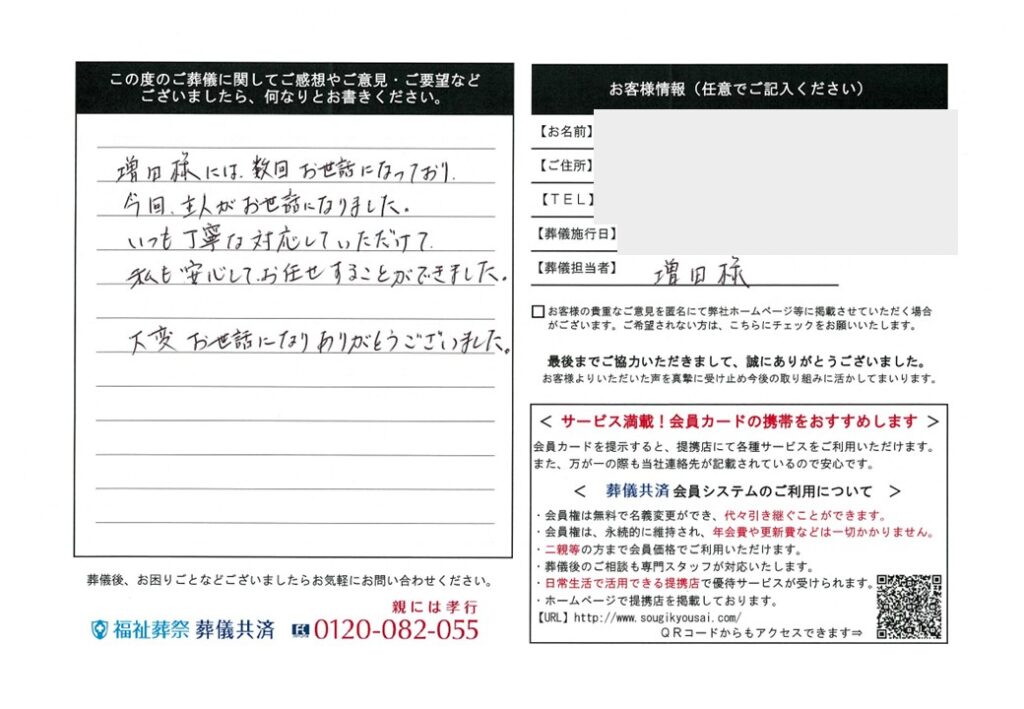 この度のご葬儀に関してご感想やご意見・ご要望など
ございましたら、何なりとお書きください。
増田様には、数回お世話になっており、
今回、主人がお世話になりました。
いつも丁寧な対応していただけて、
私も安心してお任せすることができました。
大変お世話になりありがとうございました。
葬儀後、お困りごとなどございましたらお気軽にお問い合わせください。
親には孝行
福祉葬祭 葬儀共済 0120-082-055
お客様情報（任意でご記入ください）
【お名前】
【ご住所】
【ＴＥＬ】
【葬儀施行日】
【葬儀担当者】 増田様
□お客様の貴重なご意見を匿名にて弊社ホームページ等に掲載させていただく場合
がございます。ご希望されない方は、こちらにチェックをお願いいたします。
最後までご協力いただきまして、誠にありがとうございました。
お客様よりいただいた声を真摯に受け止め今後の取り組みに活かしてまいります。
＜ サービス満載！会員カードの携帯をおすすめします ＞
会員カードを提示すると、提携店にて各種サービスをご利用いただけます。
また、万が一の際も当社連絡先が記載されているので安心です。
＜ 葬儀共済 会員システムのご利用について ＞
・会員権は無料で名義変更ができ、代々引き継ぐことができます。
・会員権は、永続的に維持され、年会費や更新費などは一切かかりません。
・二親等の方まで会員価格でご利用いただけます。
・葬儀後のご相談も専門スタッフが対応いたします。
・日常生活で活用できる提携店で優待サービスが受けられます。
・ホームページで提携店を掲載しております。
【URL】http://www.sougikyousai.com/
ＱＲコードからもアクセスできます⇒